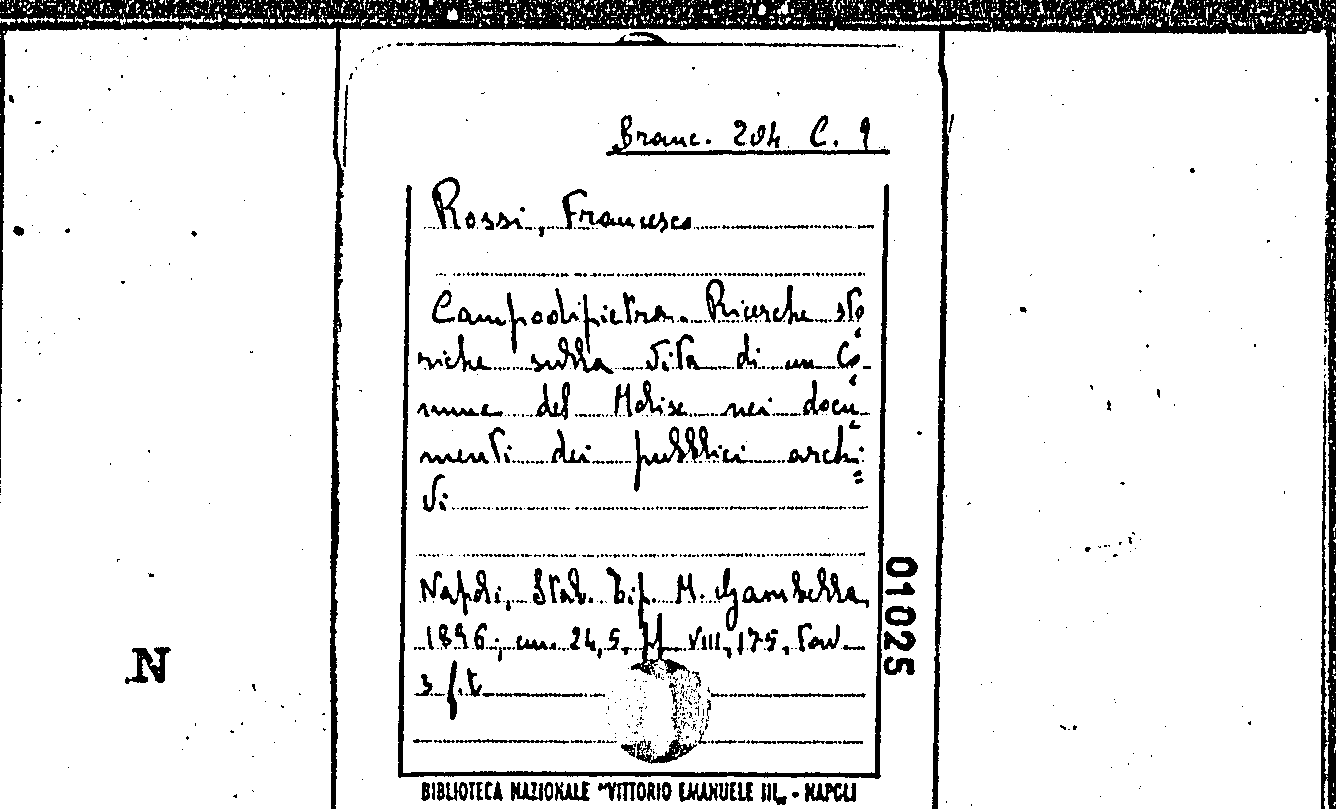 Branc. 204 C. 9
Rossi, Francesco
Campodipietra. Ricerche sto
riche sulla vita di un Co
mune del Molise nei docu
menti dei pubblici archi=
vi
Napoli, Stab. Tip. M. Gambella,
1896; cm. 24,5. pp. VIII, 175, tav.
3 f.t
01025
N
BIBLIOTECA NAZIONALE "VITTORIO EMANUELE III„ - NAPOLI